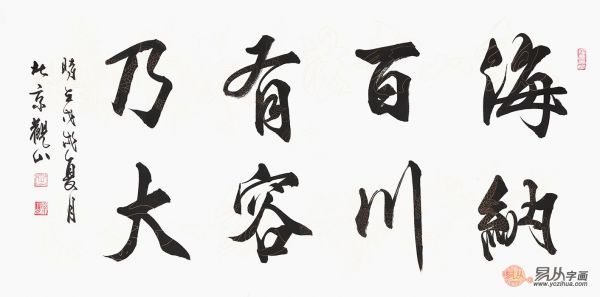 海納
百川
有容
乃大
時在戊戌夏月
北京觀山
易从字画
www.yczihua.com